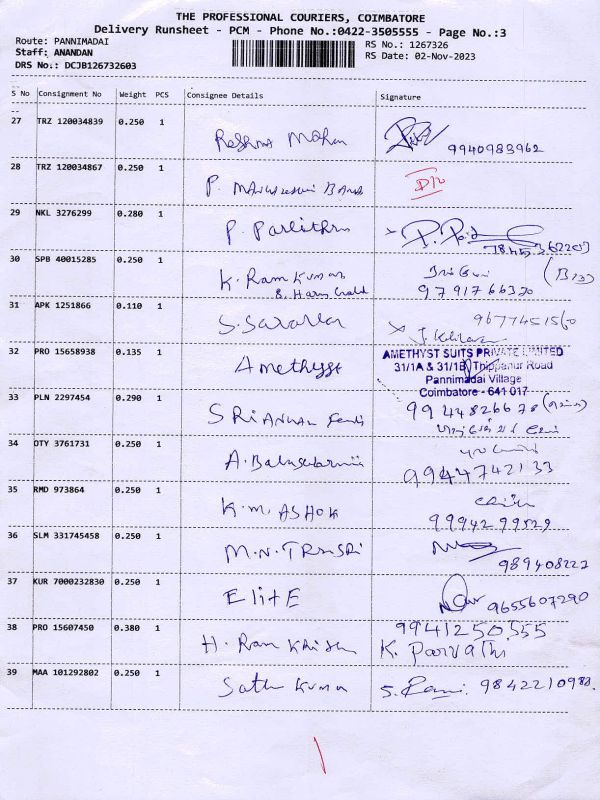 THE PROFESSIONAL COURIERS, COIMBATORE
Delivery Runsheet - PCM - Phone No.:0422-3505555 - Page No.:3
Route: PANNIMADAI
Staff: ANANDAN
DRS No.: DCJB126732603
RS No.: 1267326
RS Date: 02-Nov-2023
S No Consignment No Weight PCS Consignee Details Signature
27 TRZ 120034839 0.250 1
Reshma Mohan 9940983962
28 TRZ 120034867 0.250 1
P.
29 NKL 3276299 0.280 1
P. Pavithra P.
30 SPB 40015285 0.250 1
K. Ram Kumar
9791766320
31 APK 1251866 0.110 1
S. Savartha 9677451560
32 PRO 15658938 0.135 1
Amethyst
AMETHYST SUITS PRIVATE LIMITED
31/1A & 31/1B, Thippanur Road
Pannimadai Village
Coimbatore - 641 017
33 PLN 2297454 0.290 1
SRI 9944826678
34 OTY 3761731 0.250 1
A. 9944742133
35 RMD 973864 0.250 1
K.M. ASHOK 9994299529
36 SLM 331745458 0.250 1
M.N. 989408222
37 KUR 7000232830 0.250 1
Elite 9655607290
38 PRO 15607450 0.380 1
9941250555
H. Ram Krish K. Parvathi
39 MAA 101292802 0.250 1
Sath Kumar S. Rani. 9842210988